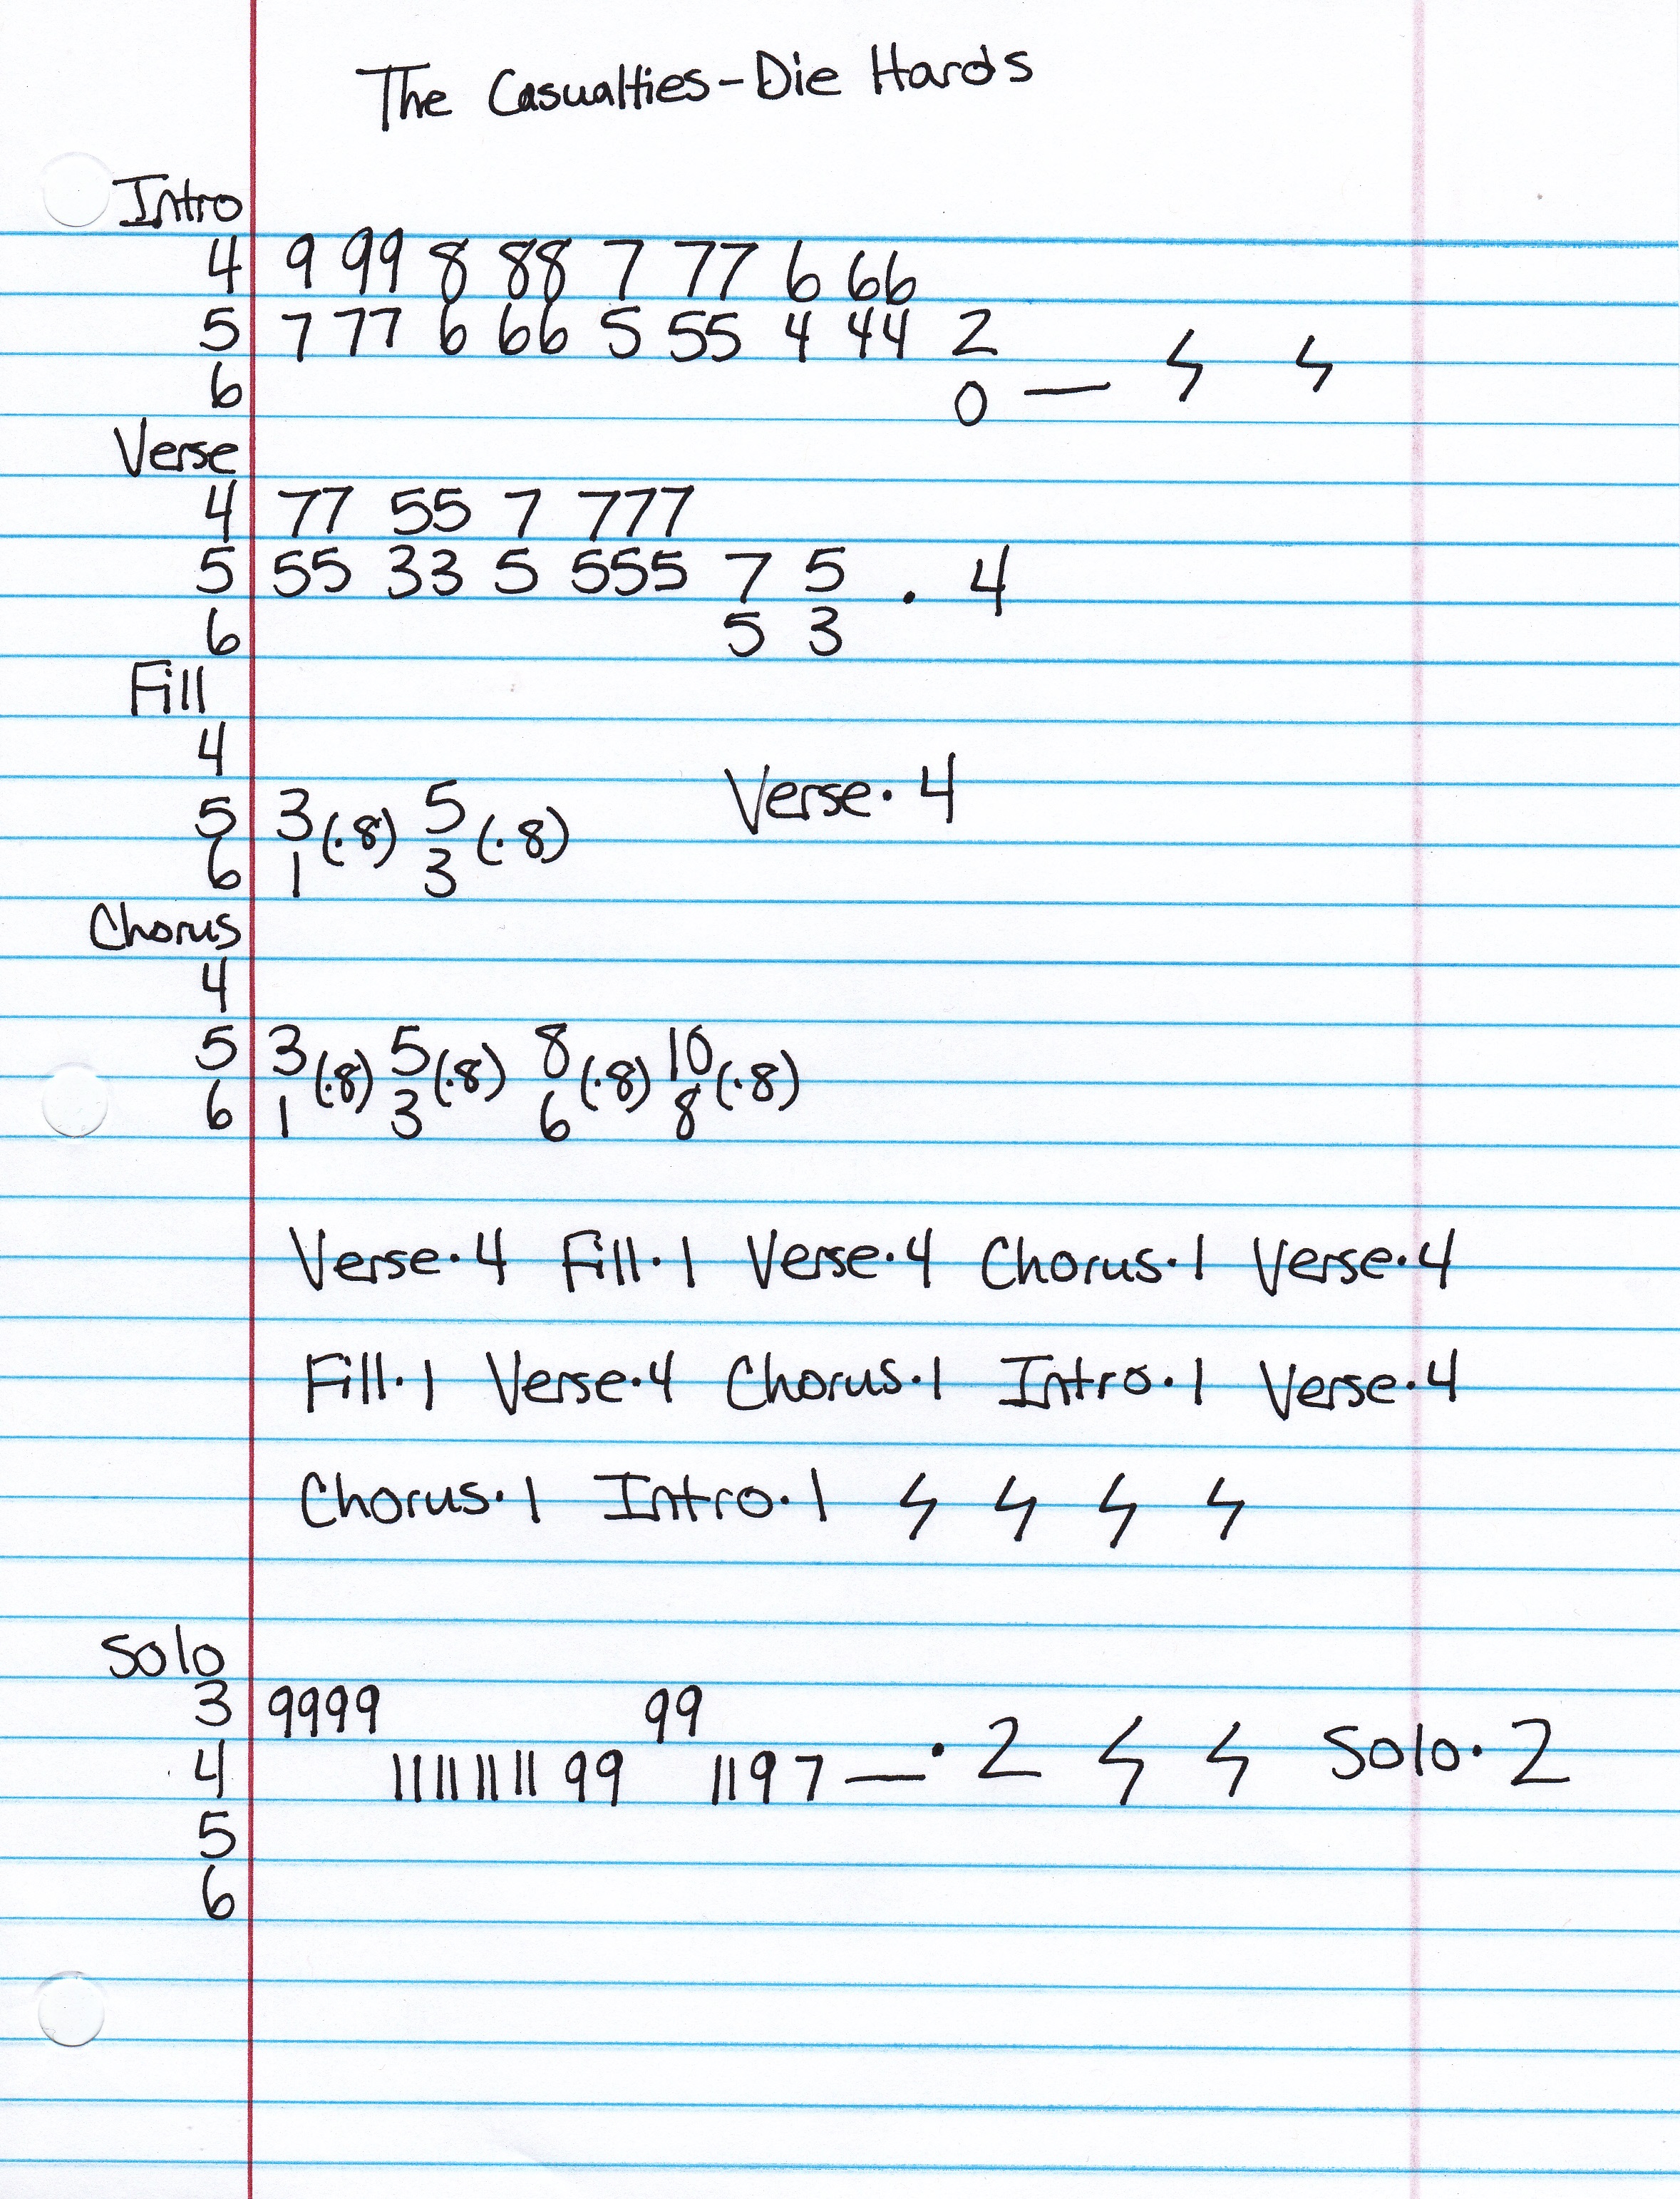 The Casualties-Die Hards
Intro
4 9 99 8 88 7 77 6 66
5 7 77 6 66 5 55 4 44 2
6 0 —
Verse
4 77 55 7 777
5 55 33 5 555 7 5 . 4
6 5 3
Fill
4
Verse · 4
5 3 (·8) 5 (·8)
6 1 3
Chorus
4
5 3 (·8) 5 (·8) 8 (·8) 10 (·8)
6 1 3 6 8
Verse·4 Fill·1 Verse·4 Chorus·1 Verse·4
Fill·1 Verse·4 Chorus·1 Intro·1 Verse·4
Chorus·1 Intro·1
Solo
3 9999 99
4 11 11 11 11 99 11 9 7 — · 2 Solo · 2
5
6